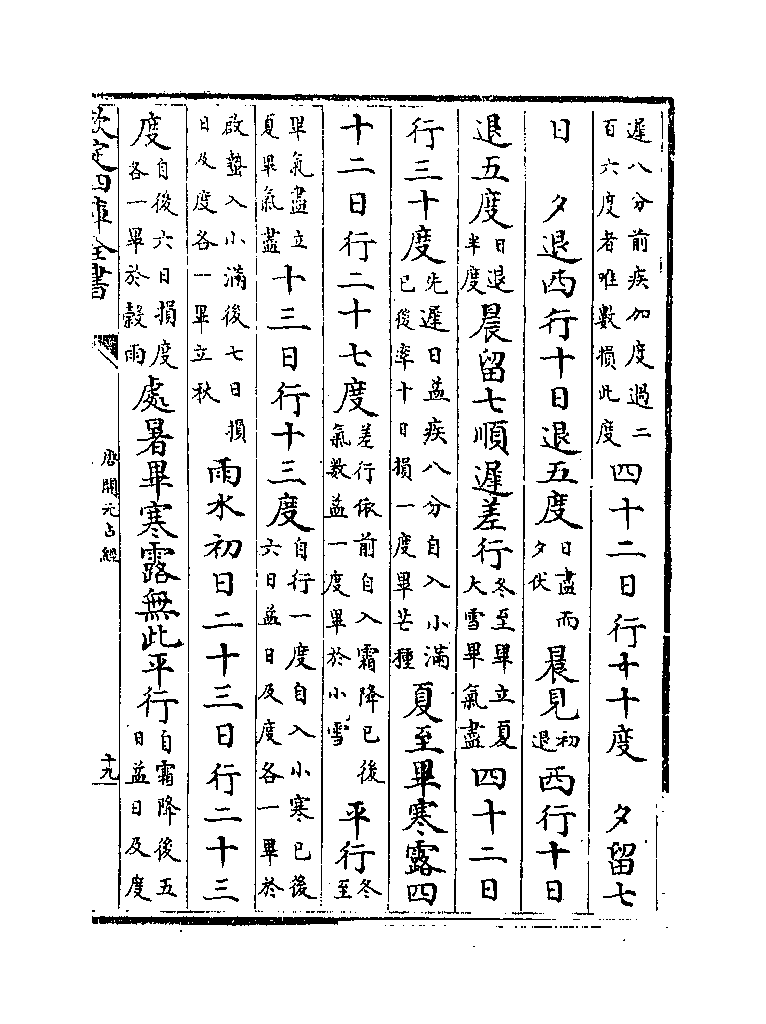 遲八分前疾加度過二百六度者唯數損此度四十二日行十度　夕留七
日　夕退西行十日退五度日盡而夕伏　晨見初退西行十日
退五度日退半度晨留七順遲差行冬至畢立夏大雪畢氣盡四十二日
行三十度先遲日益疾八分自入小滿已後率十日損一度畢芒種夏至畢寒露四
十二日行二十七度差行依前自入霜降已後氣數益一度畢於小雪　平行冬至
畢氣盡立夏畢氣盡十三日行十三度自行一度自入小寒已後六日益日及度各一畢於
啟蟄入小滿後七日損日及度各一畢立秋　雨水初日二十三日行二十三
度自後六日損度各一畢於穀雨處暑畢寒露無此平行自霜降後五日益日及度
欽定四庫全書　唐開元占經　十九